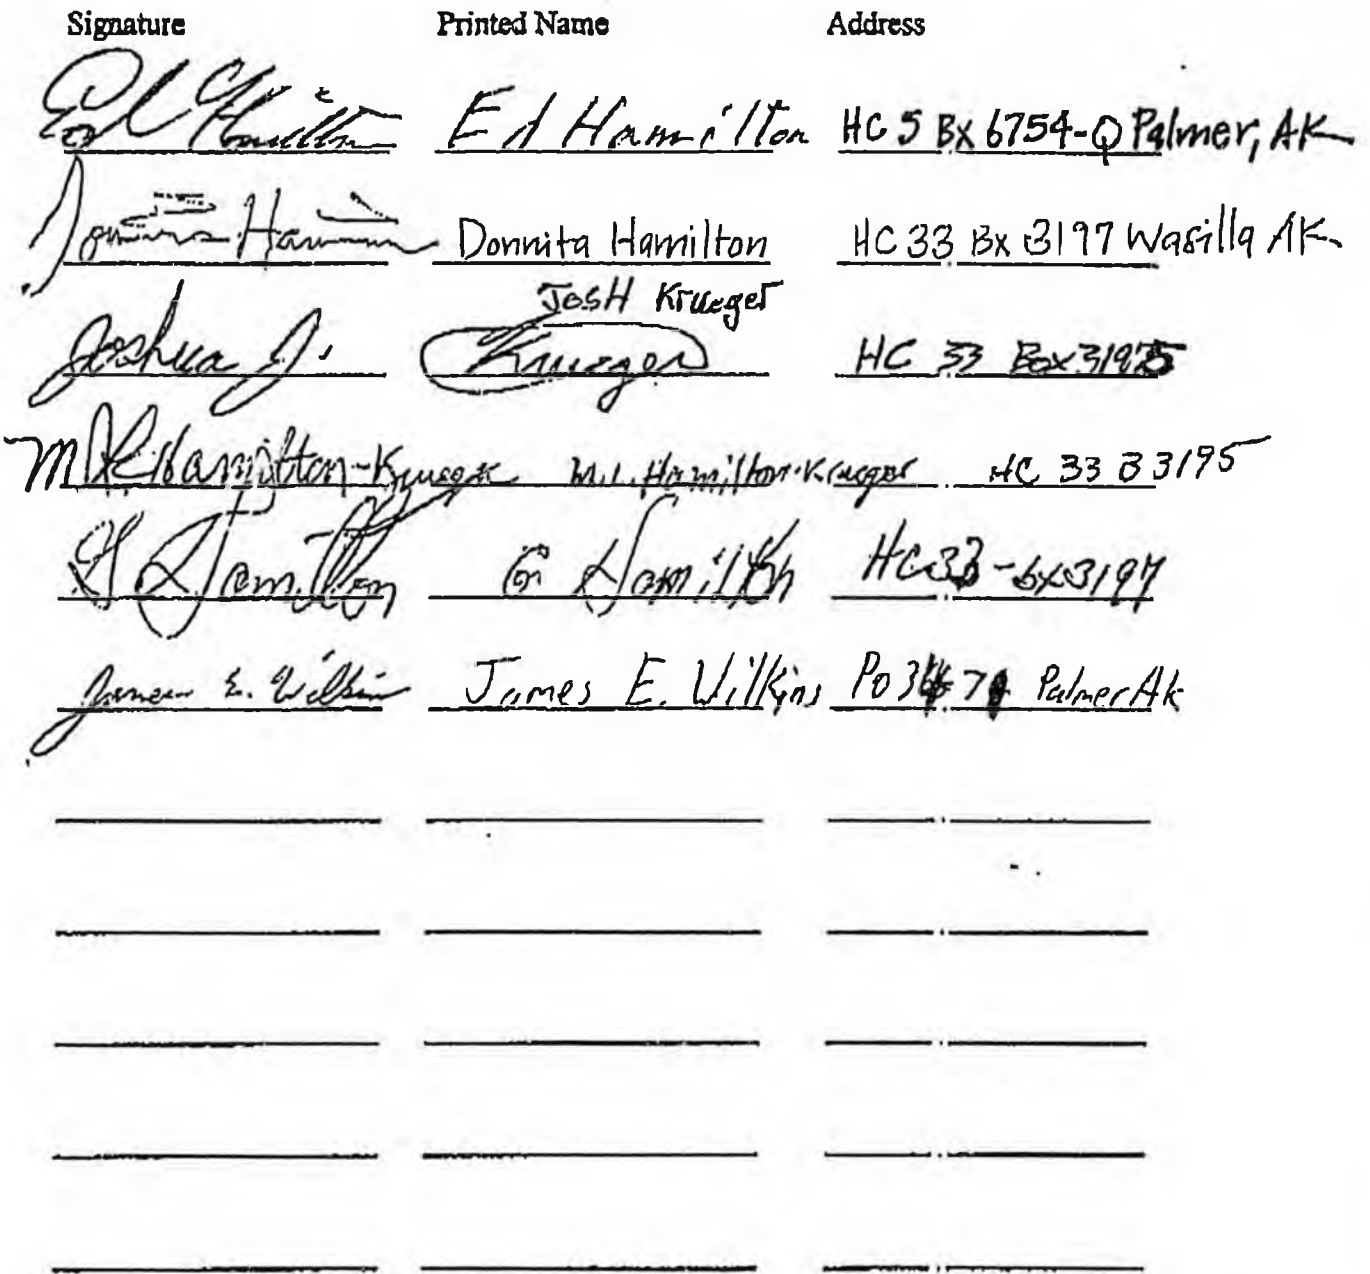 Signature Printed Name Address
Ed Hamilton Ed Hamilton HC 5 Bx 6754-Q Palmer, AK
Donnita Hamilton HC 33 Bx 3197 Wasilla AK
JOSH Krueger
Joshua J. Krueger HC 33 Box 3195
M Hamilton-Krueger M.L. Hamilton-Krueger HC 33 B 3195
G Hamilton G Hamilton HC33-bx3197
James E. Wilkins James E. Wilkins PO Palmer Ak